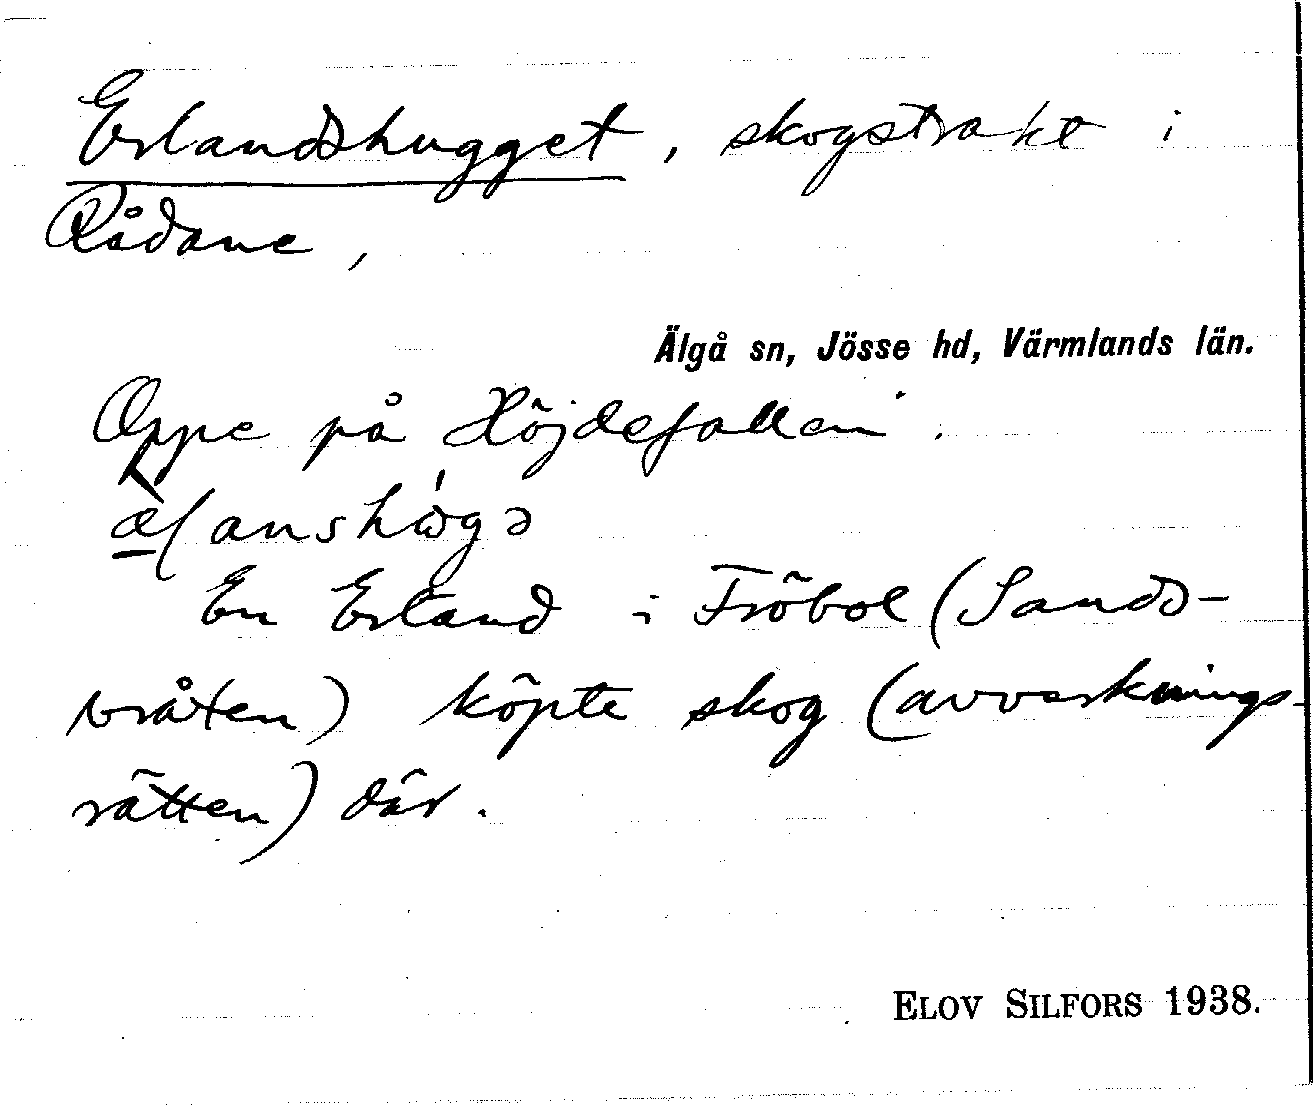 Erlandshugget, skogstrakt i
Rådane,
Älgå sn, Jösse hd, Värmlands län.
Oppe på Höjdefallen.
En Erland i Fröbol (Sands-
bråten) köpte skog (avverknings-
rätten) där.
ELOV SILFORS 1938.